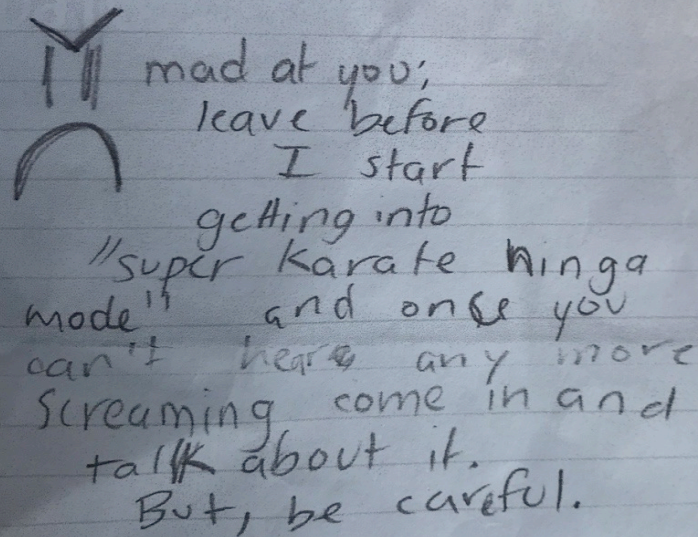 mad at you;
leave before
I start
getting into
"super karate ninga
mode" and once you
can't hear any more
screaming come in and
talk about it.
But, be careful.